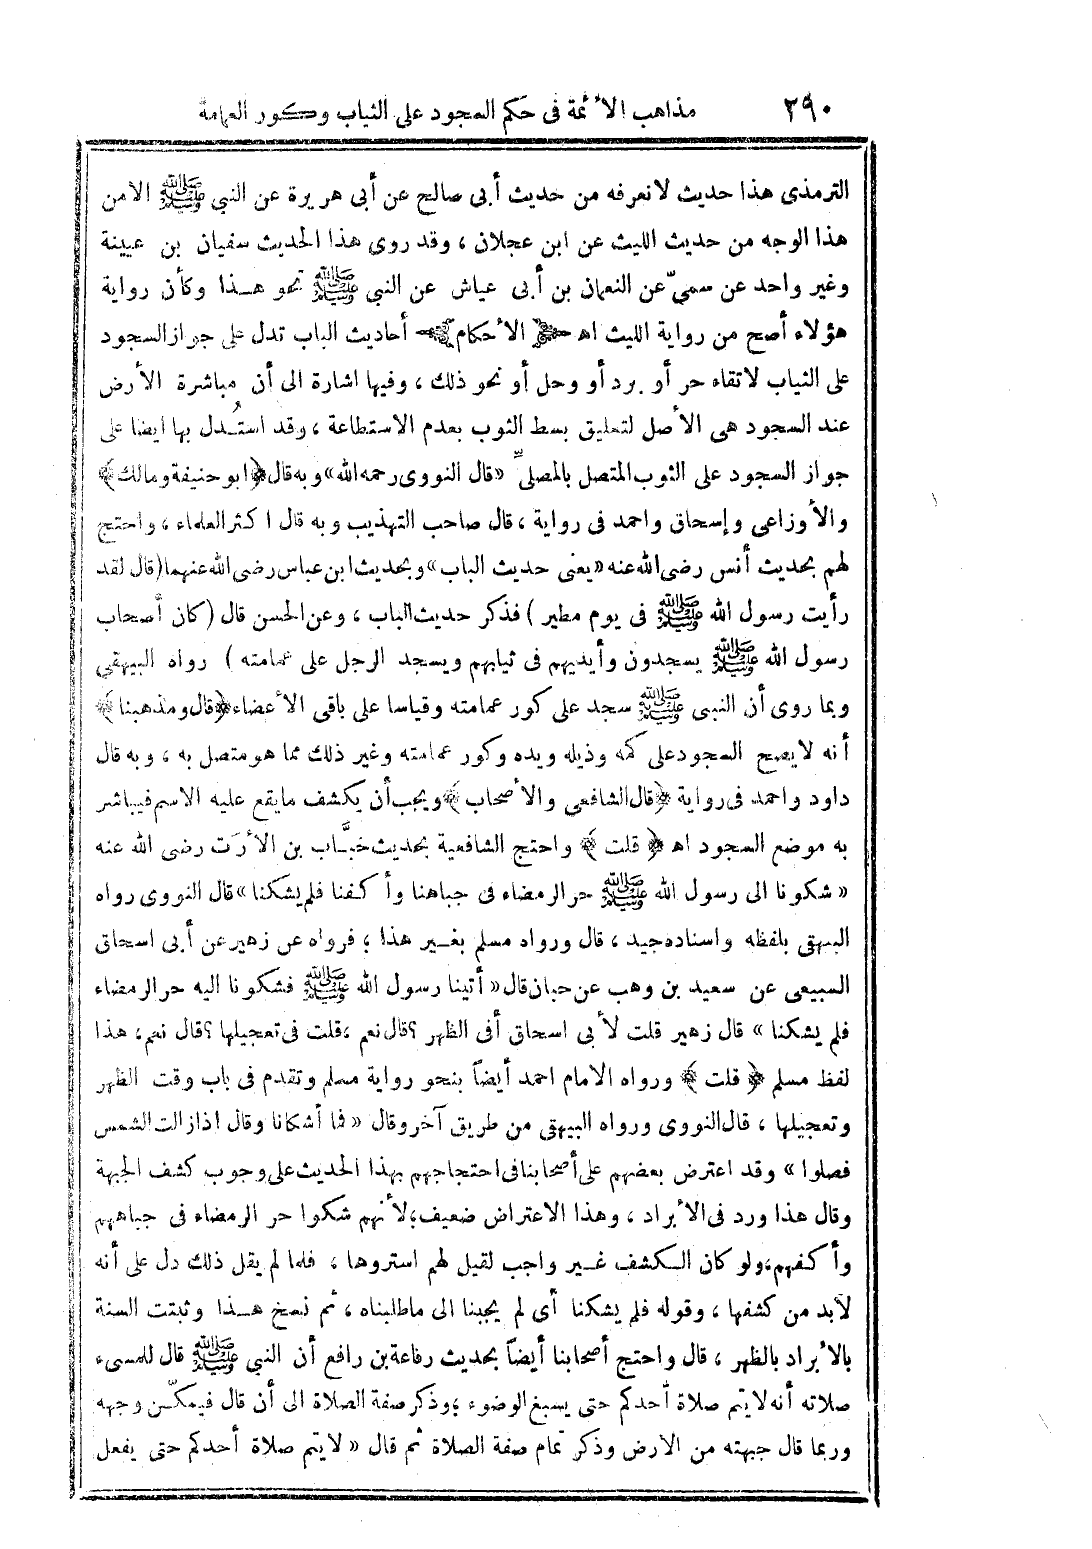 ٢٩٠ مذاهب الأئمة فى حكم السجود على الثياب وكور العمامة
الترمذى هذا حديث لانعرفه من حديث أبى صالح عن أبى هريرة عن النبى ﷺ الامن
هذا الوجه من حديث الليث عن ابن عجلان ، وقد روى هذا الحديث سفيان بن عيينة
وغير واحد عن سمىّ عن النعمان بن أبى عياش عن النبى ﷺ نحو هـذا وكأن رواية
هؤلاء أصح من رواية الليث اه ﴿ الأحكام ﴾ أحاديث الباب تدل على جواز السجود
على الثياب لاتقاء حر أو برد أو وحل أو نحو ذلك ، وفيها اشارة الى أن مباشرة الأرض
عند السجود هى الأصل لتعليق بسط الثوب بعدم الاستطاعة ، وقد استُدل بها ايضا على
جواز السجود على الثوب المتصل بالمصلى «قال النووى رحمه الله» وبه قال ﴿ابو حنيفة ومالك﴾
والأوزاعى وإسحاق واحمد فى رواية ، قال صاحب التهذيب وبه قال اكثر العلماء ، واحتج
لهم بحديث أنس رضى الله عنه «يعنى حديث الباب» وبحديث ابن عباس رضى الله عنهما (قال لقد
رأيت رسول الله ﷺ فى يوم مطير ) فذكر حديث الباب ، وعن الحسن قال (كان أصحاب
رسول الله ﷺ يسجدون وأيديهم فى ثيابهم ويسجد الرجل على عمامته ) رواه البيهقى
وبما روى أن النبى ﷺ سجد على كور عمامته وقياسا على باقى الأعضاء ﴿قال ومذهبنا﴾
أنه لايصح السجود على كمه وذيله ويده وكور عمامته وغير ذلك مما هو متصل به ، وبه قال
داود واحمد فى رواية ﴿قال الشافعى والأصحاب﴾ ويجب أن يكشف مايقع عليه الاسم فيباشر
به موضع السجود اه ﴿ قلت ﴾ واحتج الشافعية بحديث خبَّاب بن الأرَت رضى الله عنه
« شكونا الى رسول الله ﷺ حر الرمضاء فى جباهنا وأكفنا فلم يشكنا » قال النووى رواه
البيهقى بلفظه واسناده جيد ، قال ورواه مسلم بغـير هذا ؛ فرواه عن زهير عن أبى اسحاق
السبيعى عن سعيد بن وهب عن حبان قال « أتينا رسول الله ﷺ فشكونا اليه حر الرمضاء
فلم يشكنا » قال زهير قلت لأبى اسحاق أفى الظهر ؟ قال نعم ، قلت فى تعجيلها ؟ قال نعم ، هذا
لفظ مسلم ﴿ قلت ﴾ ورواه الامام احمد أيضاً بنحو رواية مسلم وتقدم فى باب وقت الظهر
وتعجيلها ، قال النووى ورواه البيهقى من طريق آخر وقال « فما أشكانا وقال اذا زالت الشمس
فصلوا » وقد اعترض بعضهم على أصحابنا فى احتجاجهم بهذا الحديث على وجوب كشف الجبهة
وقال هذا ورد فى الأبراد ، وهذا الاعتراض ضعيف ؛ لأنهم شكوا حر الرمضاء فى جباههم
وأكفهم ، ولو كان الكشف غـير واجب لقيل لهم استروها ، فلما لم يقل ذلك دل على أنه
لابد من كشفها ، وقوله فلم يشكنا أى لم يجبنا الى ماطلبناه ، ثم نسخ هـذا وثبتت السنة
بالأبراد بالظهر ، قال واحتج أصحابنا أيضاً بحديث رفاعة بن رافع أن النبى ﷺ قال للمسىء
صلاته أنه لايتم صلاة أحدكم حتى يسبغ الوضوء ؛ وذكر صفة الصلاة الى أن قال فيمكّن وجهه
وربما قال جبهته من الارض وذكر تمام صفة الصلاة ثم قال « لايتم صلاة أحدكم حتى يفعل